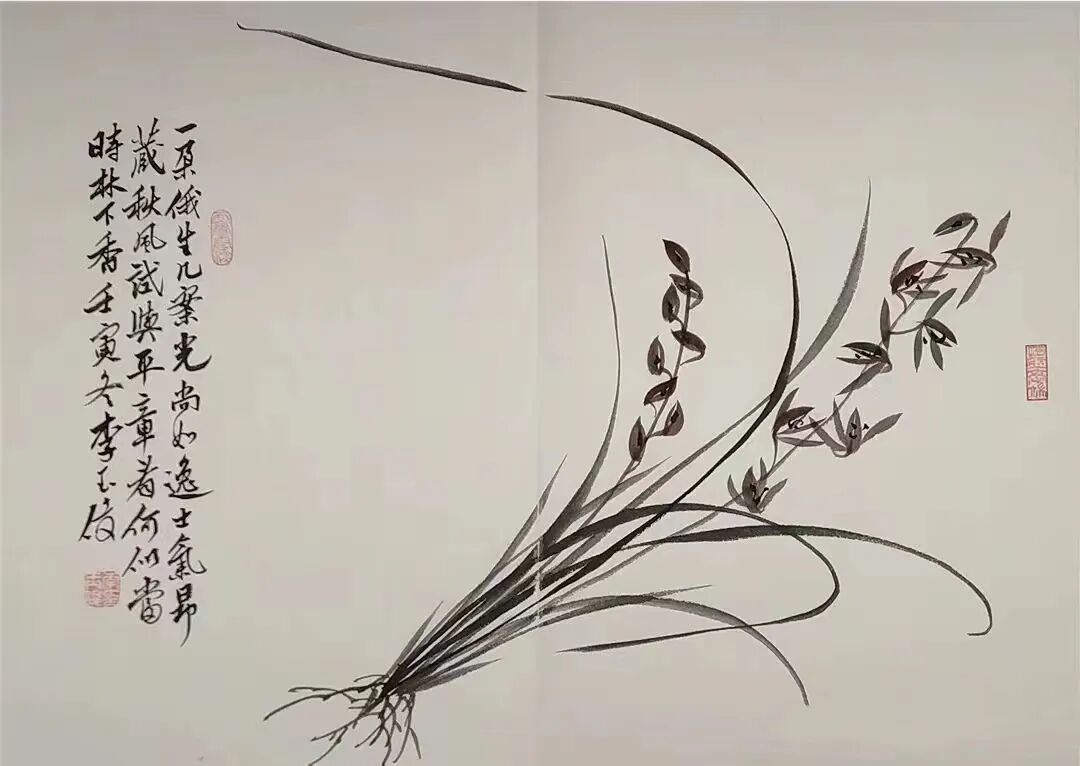 一朵俄生几案光尚如逸士氣昂
藏秋風試與平章看何似當
時林下香壬寅冬李玉